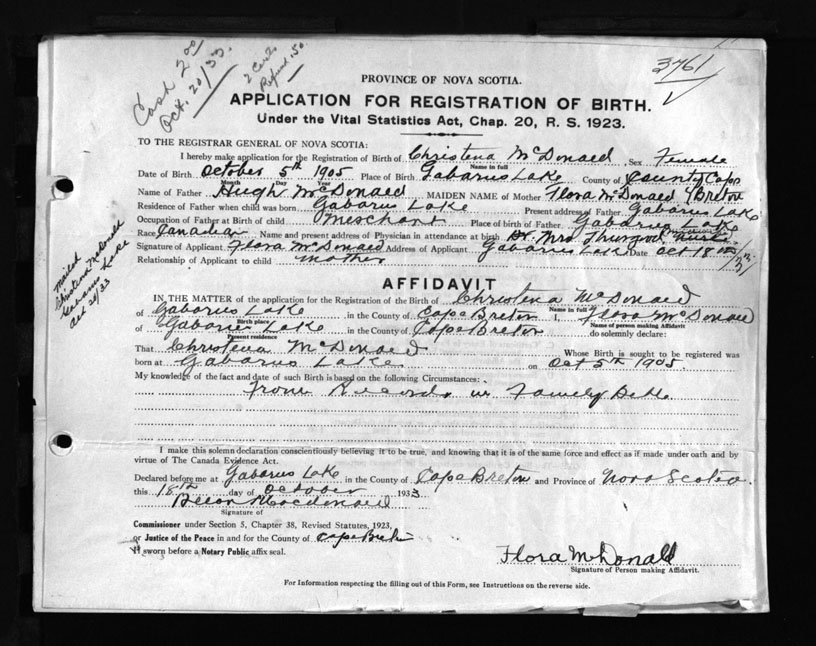 Cash 2.00
Oct. 20/33.
2 Certs
Refund .50
3761
PROVINCE OF NOVA SCOTIA.
APPLICATION FOR REGISTRATION OF BIRTH.
Under the Vital Statistics Act, Chap. 20, R. S. 1923.
TO THE REGISTRAR GENERAL OF NOVA SCOTIA:
I hereby make application for the Registration of Birth of Christena McDonald, Sex Female
Name in full
Date of Birth October 5th 1905 Place of Birth Gabarus Lake County of County Cape Breton
Month Day Year
Name of Father Hugh McDonald MAIDEN NAME of Mother Flora McDonald
Residence of Father when child was born Gabarus Lake Present address of Father Gabarus Lake
Occupation of Father at Birth of child Merchant Place of birth of Father Gabarus Lake
Race Canadian Name and present address of Physician in attendance at birth Dr. Mrs Nurse
Signature of Applicant Flora McDonald Address of Applicant Gabarus Lake Date Oct 18th /33
Relationship of Applicant to child mother
Mailed
Christena McDonald
Gabarus Lake
Oct 20/33
AFFIDAVIT
IN THE MATTER of the application for the Registration of the Birth of Christena McDonald
Name in full
of Gabarus Lake, in the County of Cape Breton I, Flora McDonald
Birth place Name of person making Affidavit
of Gabarus Lake in the County of Cape Breton do solemnly declare:
Present residence
That Christena McDonald Whose Birth is sought to be registered was
born at Gabarus Lake on Oct 5th 1905
My knowledge of the fact and date of such Birth is based on the following Circumstances:
from Records in Family Bible
I make this solemn declaration conscientiously believing it to be true, and knowing that it is of the same force and effect as if made under oath and by
virtue of The Canada Evidence Act.
Declared before me at Gabarus Lake in the County of Cape Breton and Province of Nova Scotia.
this 18th day of October 1933
Macdonald
Signature of
Commissioner under Section 5, Chapter 38, Revised Statutes, 1923,
or Justice of the Peace in and for the County of Cape Breton
If sworn before a Notary Public affix seal.
Flora McDonald
Signature of Person making Affidavit.
For Information respecting the filling out of this Form, see Instructions on the reverse side.